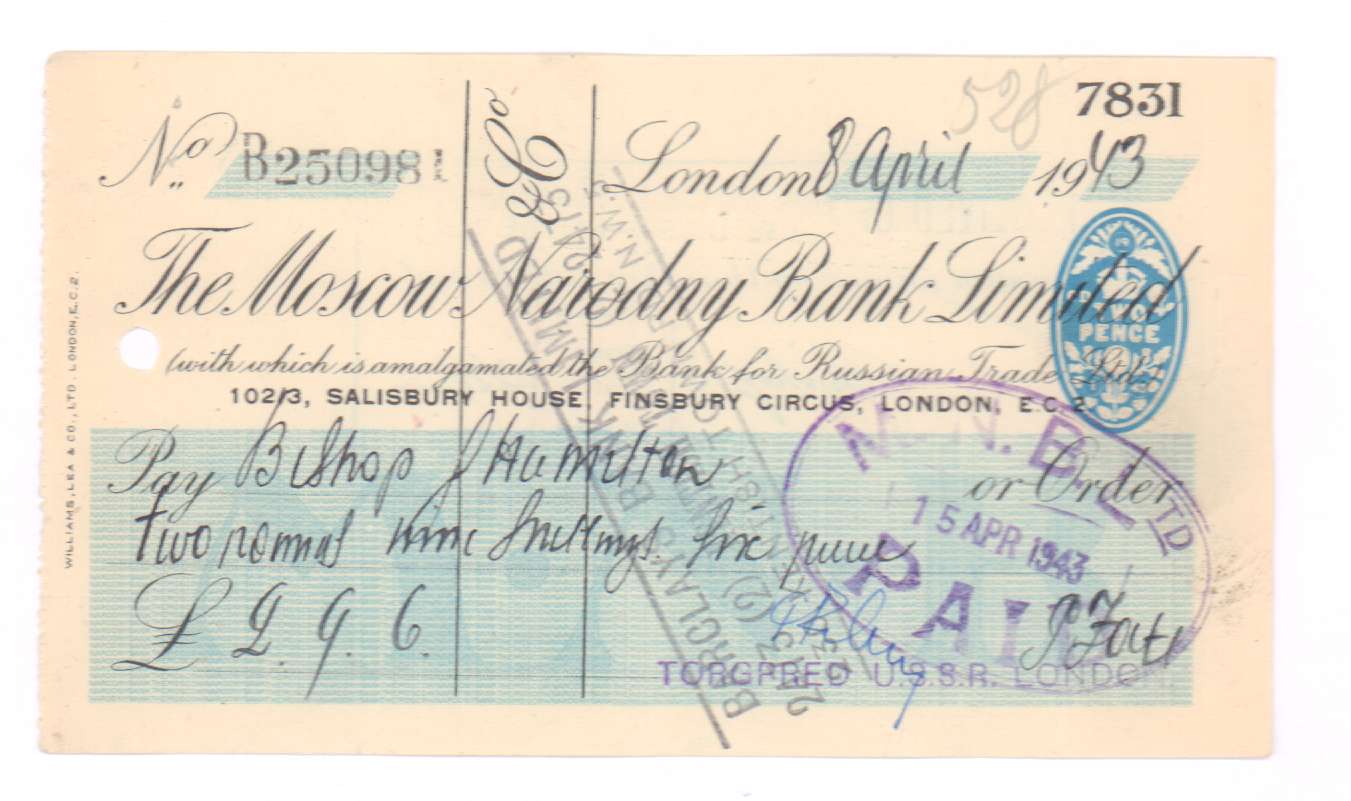 528
7831
No B25098
& Co
London 8 April 1943
The Moscow Narodny Bank Limited
TWO PENCE
(with which is amalgamated the Bank for Russian Trade Ltd.)
102/3, SALISBURY HOUSE, FINSBURY CIRCUS, LONDON, E.C.2.
Pay Bishop & Hamilton or Order
two pounds nine shillings six pence
£ 2. 9. 6.
M.N.B. LTD
15 APR 1943
PAID
TORGPRED U.S.S.R. LONDON.
BARCLAYS BANK LIMITED
WILLIAMS, LEA & CO., LTD. LONDON, E.C.2.